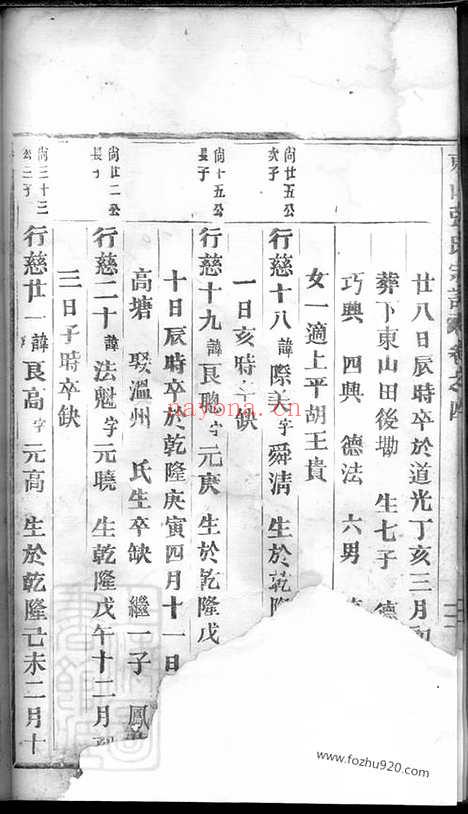 氏宗譜 卷之四
廿八日辰時卒於道光丁亥三月初
葬下東山田後墈 生七子 德
巧興 四興 德法 六男
女一適上平胡王貴
尚廿五公
次子
行慈十八諱際美字舜清 生於乾隆
一日亥時卒缺
尚十五公
長子
行慈十九諱良聰字元庚 生於乾隆戊
十日辰時卒於乾隆庚寅四月十一日
高塘 娶溫州 氏生卒缺 繼一子 鳳
尚廿二公
長子
行慈二十諱法魁字元曉 生乾隆戊午十二月
三日子時卒缺
尚三十三
公子
行慈廿一諱良高字元高 生於乾隆己未二月十
nayona.cn
www.fozhu920.com